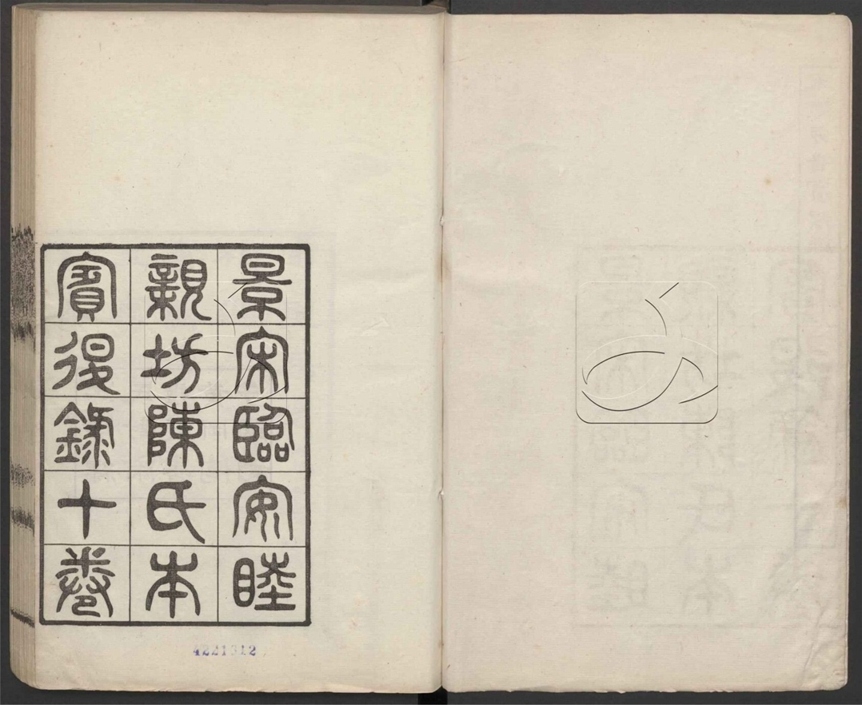 景宋臨安睦
親坊陳氏本
賓退錄十卷
4221312